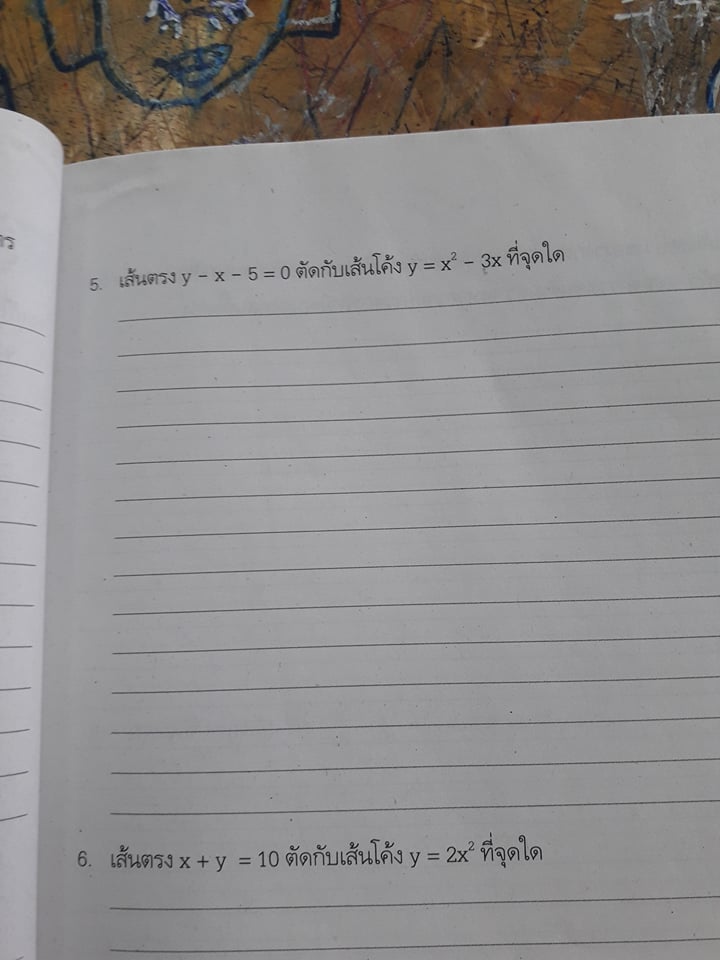 5. เส้นตรง y − x − 5 = 0 ตัดกับเส้นโค้ง y = x² − 3x ที่จุดใด
6. เส้นตรง x + y = 10 ตัดกับเส้นโค้ง y = 2x² ที่จุดใด